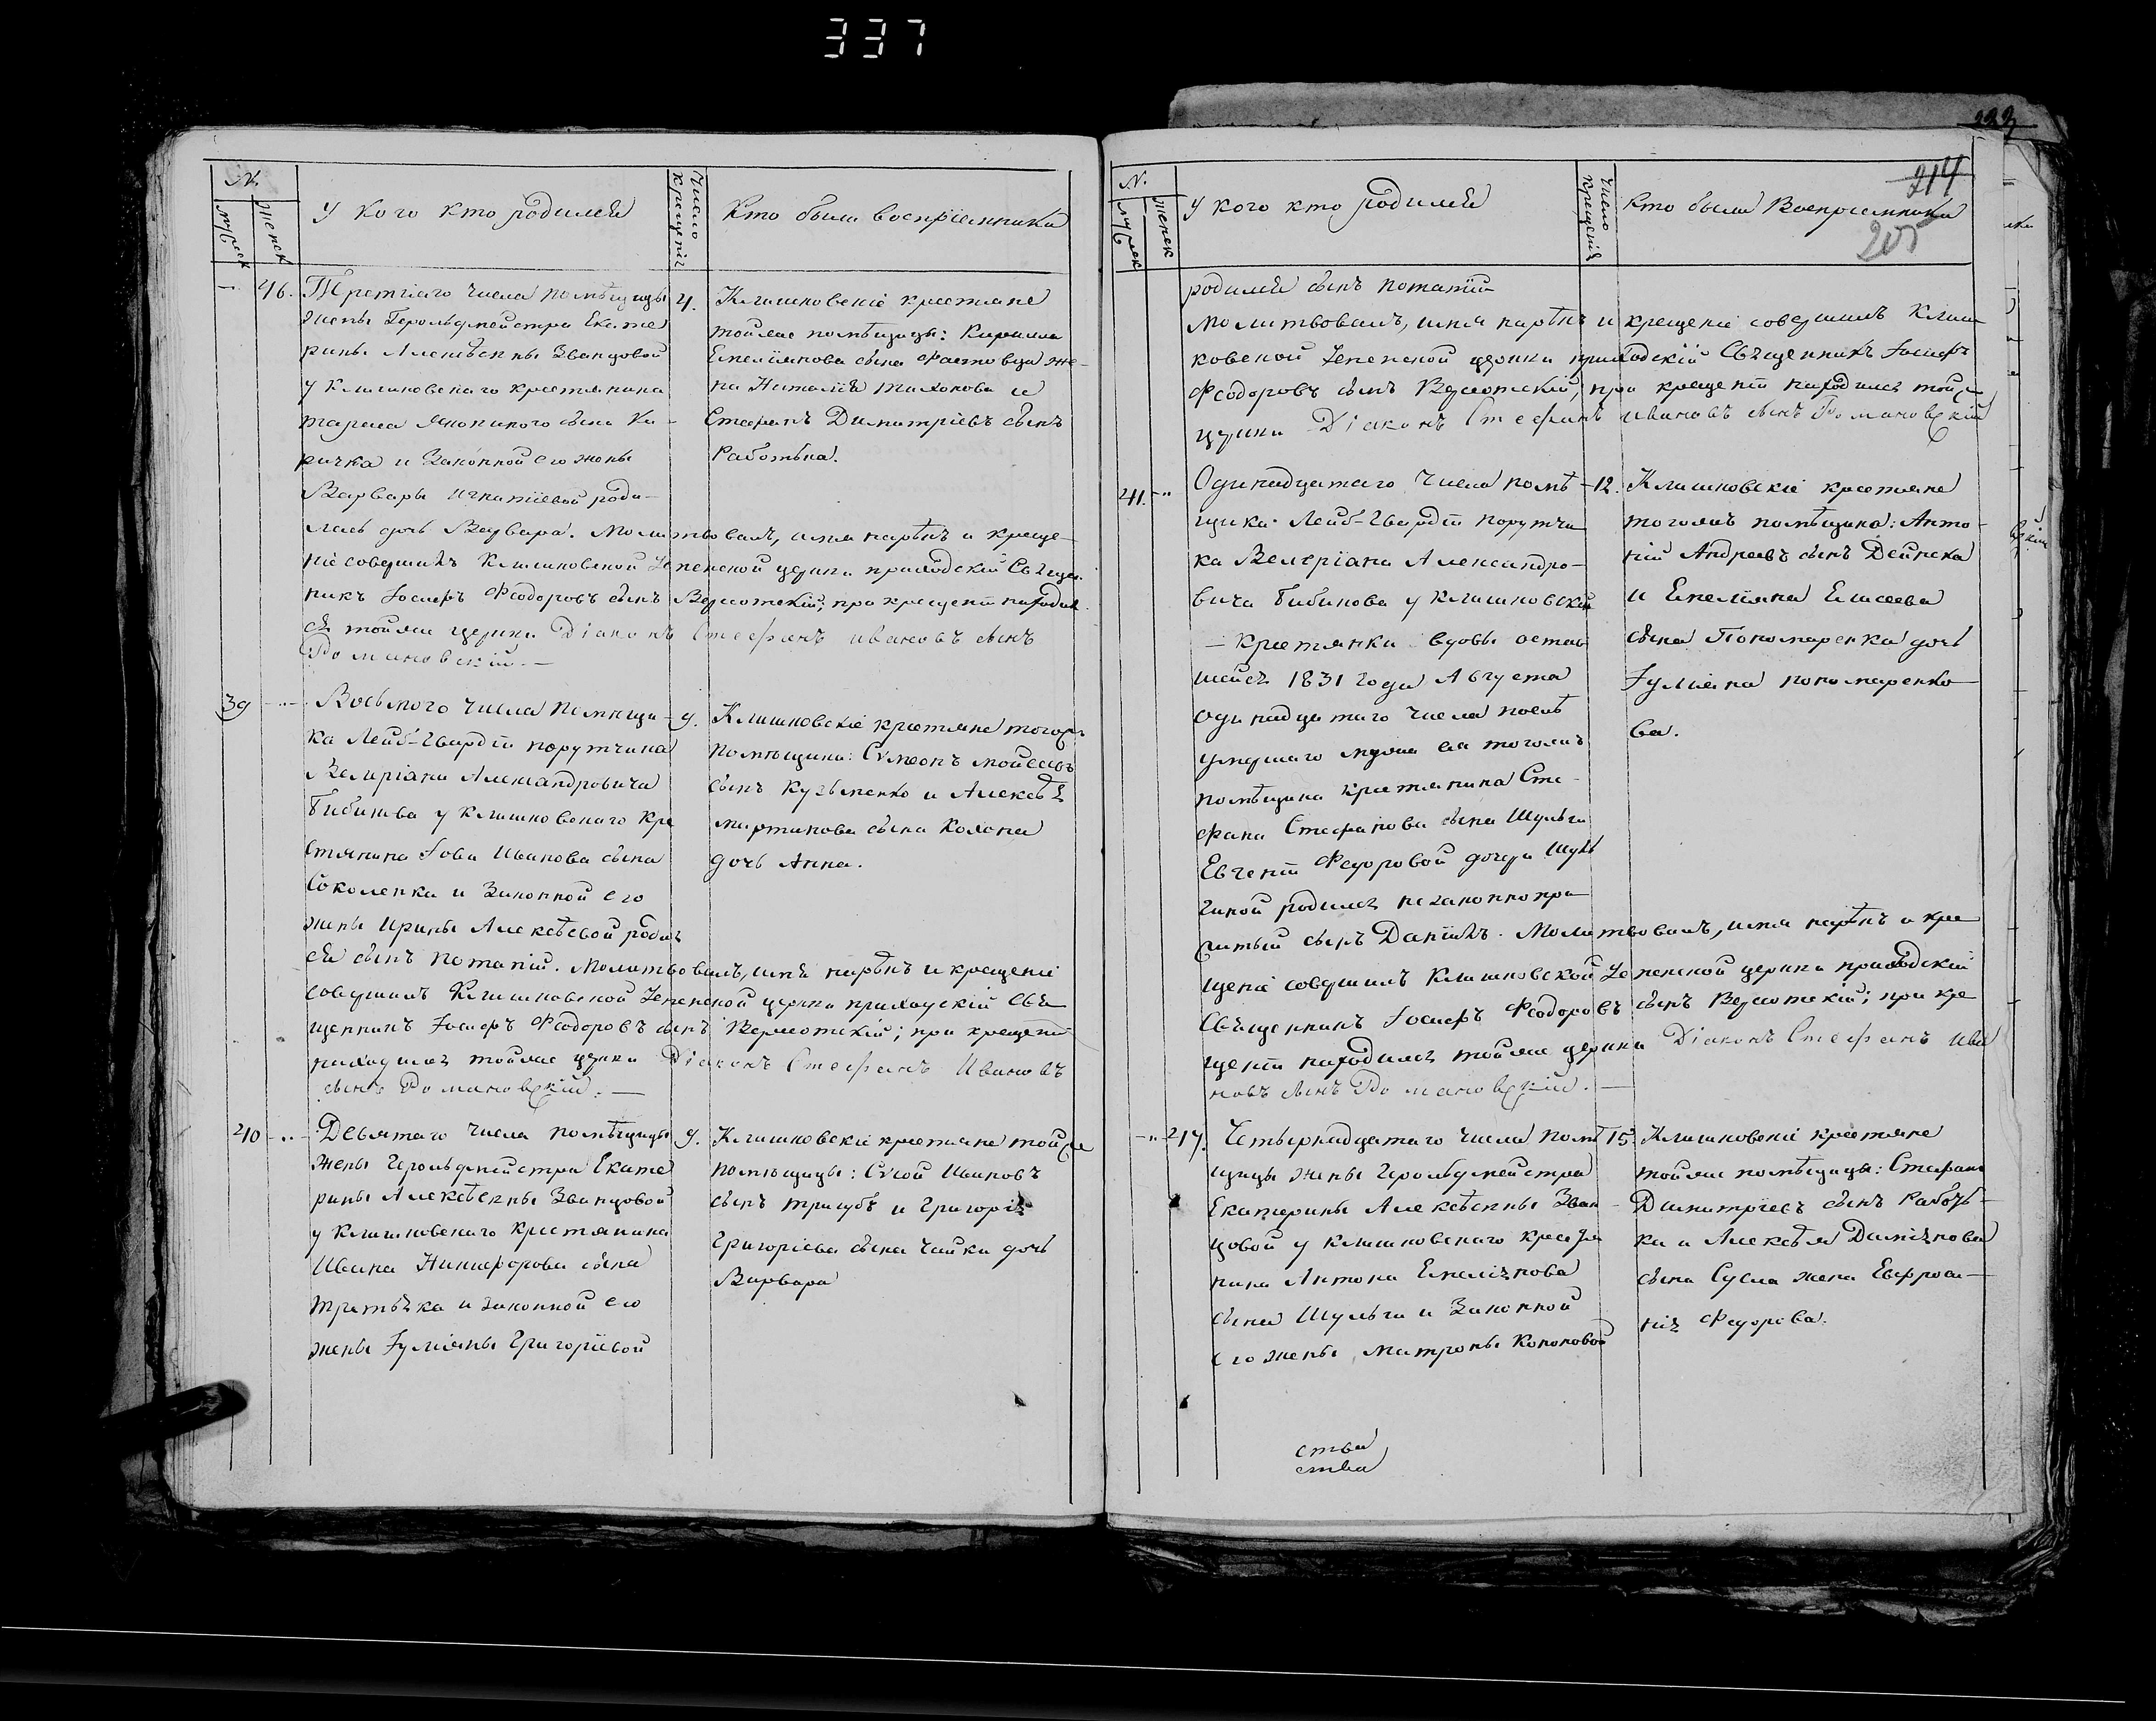 337
N.
мужеск
женск
У кого кто родился
Число крещенія
Кто были воспріемники
46.
Третіяго числа помѣщицы
жены Герольдмейстра Екате
рины Алексѣевны Званцовой
у Клишковскаго крестянина
Тараса
сына Ки-
ричка и законной его жены
Варвары Игнатіевой роди-
лась дочь Варвара. Молитвовалъ, имя нарѣкъ и креще-
ніе совершилъ Клишковской Успенской церкви приходскій Священ
никъ Іосифъ Феодоровъ сынъ Верлотскій; при крещеніи находил
ся тойже церкви Діаконъ Стефанъ Ивановъ сынъ
Романовскій. —
4.
Клишковскіе крестяне
тойже помѣщицы: Кирилла
Емеліянова сына же-
на Наталія Тихонова и
Стефанъ Димитріевъ сынъ
Работька.
39
Восьмого числа помѣщи-
ка Лейб-Гвардіи порутчика
Валеріана Александровича
Бибикова у Клишковскаго кре
стянина Іова Иванова сына
Соколенка и законной его
жены Ирины Алексѣевой родил
ся сынъ Потапій. Молитвовалъ, имя нарѣкъ и крещеніе
совершилъ Клишковской Успенской церкви приходскій Свя
щенникъ Іосифъ Феодоровъ сынъ Верлотскій; при крещеніи
находился тойже церкви Діаконъ Стефанъ Ивановъ
сынъ Романовскій. —
9.
Клишковскіе крестяне тогожъ
помѣщика: Сѵмеонъ Мойсеевъ
сынъ Кузьменко и Алексѣя
Мартинова сына Коляна
дочь Анна.
40
Девятаго числа помѣщицы
жены Герольдмейстра Екате
рины Алексѣевны Званцовой
у Клишковскаго крестянина
Ивана Никифорова сына
Третьяка и законной его
жены Іуліяны Григоріевой
9.
Клишковскіе крестяне тойже
помѣщицы: Сысой Ивановъ
сынъ Тригубъ и Григорія
Григоріева сына Чайки дочь
Варвара
223
214
205
N.
мужеск
женск
У кого кто родился
Число крещенія
Кто были Воспріемники
родился сынъ Потапій
Молитвовалъ, имя нарѣкъ и крещеніе совершилъ Клиш
ковской Успенской церкви приходскій Священникъ Іосифъ
Феодоровъ сынъ Верлотскій; при крещеніи находился тойже
церкви Діаконъ Стефанъ Ивановъ сынъ Романовскій
41.
Одинадцатаго числа помѣ-
щика Лейб-Гвардіи порутчи
ка Валеріана Александро-
вича Бибикова у Клишковской
— крестянки вдовы остав
шейся 1831 года Августа
одинадцатаго числа послѣ
умершаго мужа ея тогожъ
помѣщика крестянина Сте-
фана Стефанова сына Шульги
Евгеніи Федоровой дочери Шуль
гиной родился незаконнопри
житый сынъ Даніилъ. Молитвовалъ, имя нарѣкъ и кре
щеніе совершилъ Клишковской Успенской церкви приходскій
Священникъ Іосифъ Феодоровъ сынъ Верлотскій; при кре
щеніи находился тойже церкви Діаконъ Стефанъ Ива
новъ сынъ Романовскій. —
12.
Клишковскіе крестяне
тогожъ помѣщика: Анто-
ній Андреевъ сынъ Дейнека
и Емеліяна Елисеева
сына Пономаренка дочь
Іуліяна Пономаренко
ва.
47.
Четырнадцатаго числа помѣ
щицы жены Герольдмейстра
Екатерины Алексѣевны Зван-
цовой у Клишковскаго крестя
нина Антона Емеліянова
сына Шульги и законной
его жены Матроны Кононовой
15.
Клишковскіе крестяне
тойже помѣщицы: Стефанъ
Димитріевъ сынъ Работь-
ка и Алексѣя Даміянова
сына Сусла жена Евфроси-
нія Федорова.
ства
ства